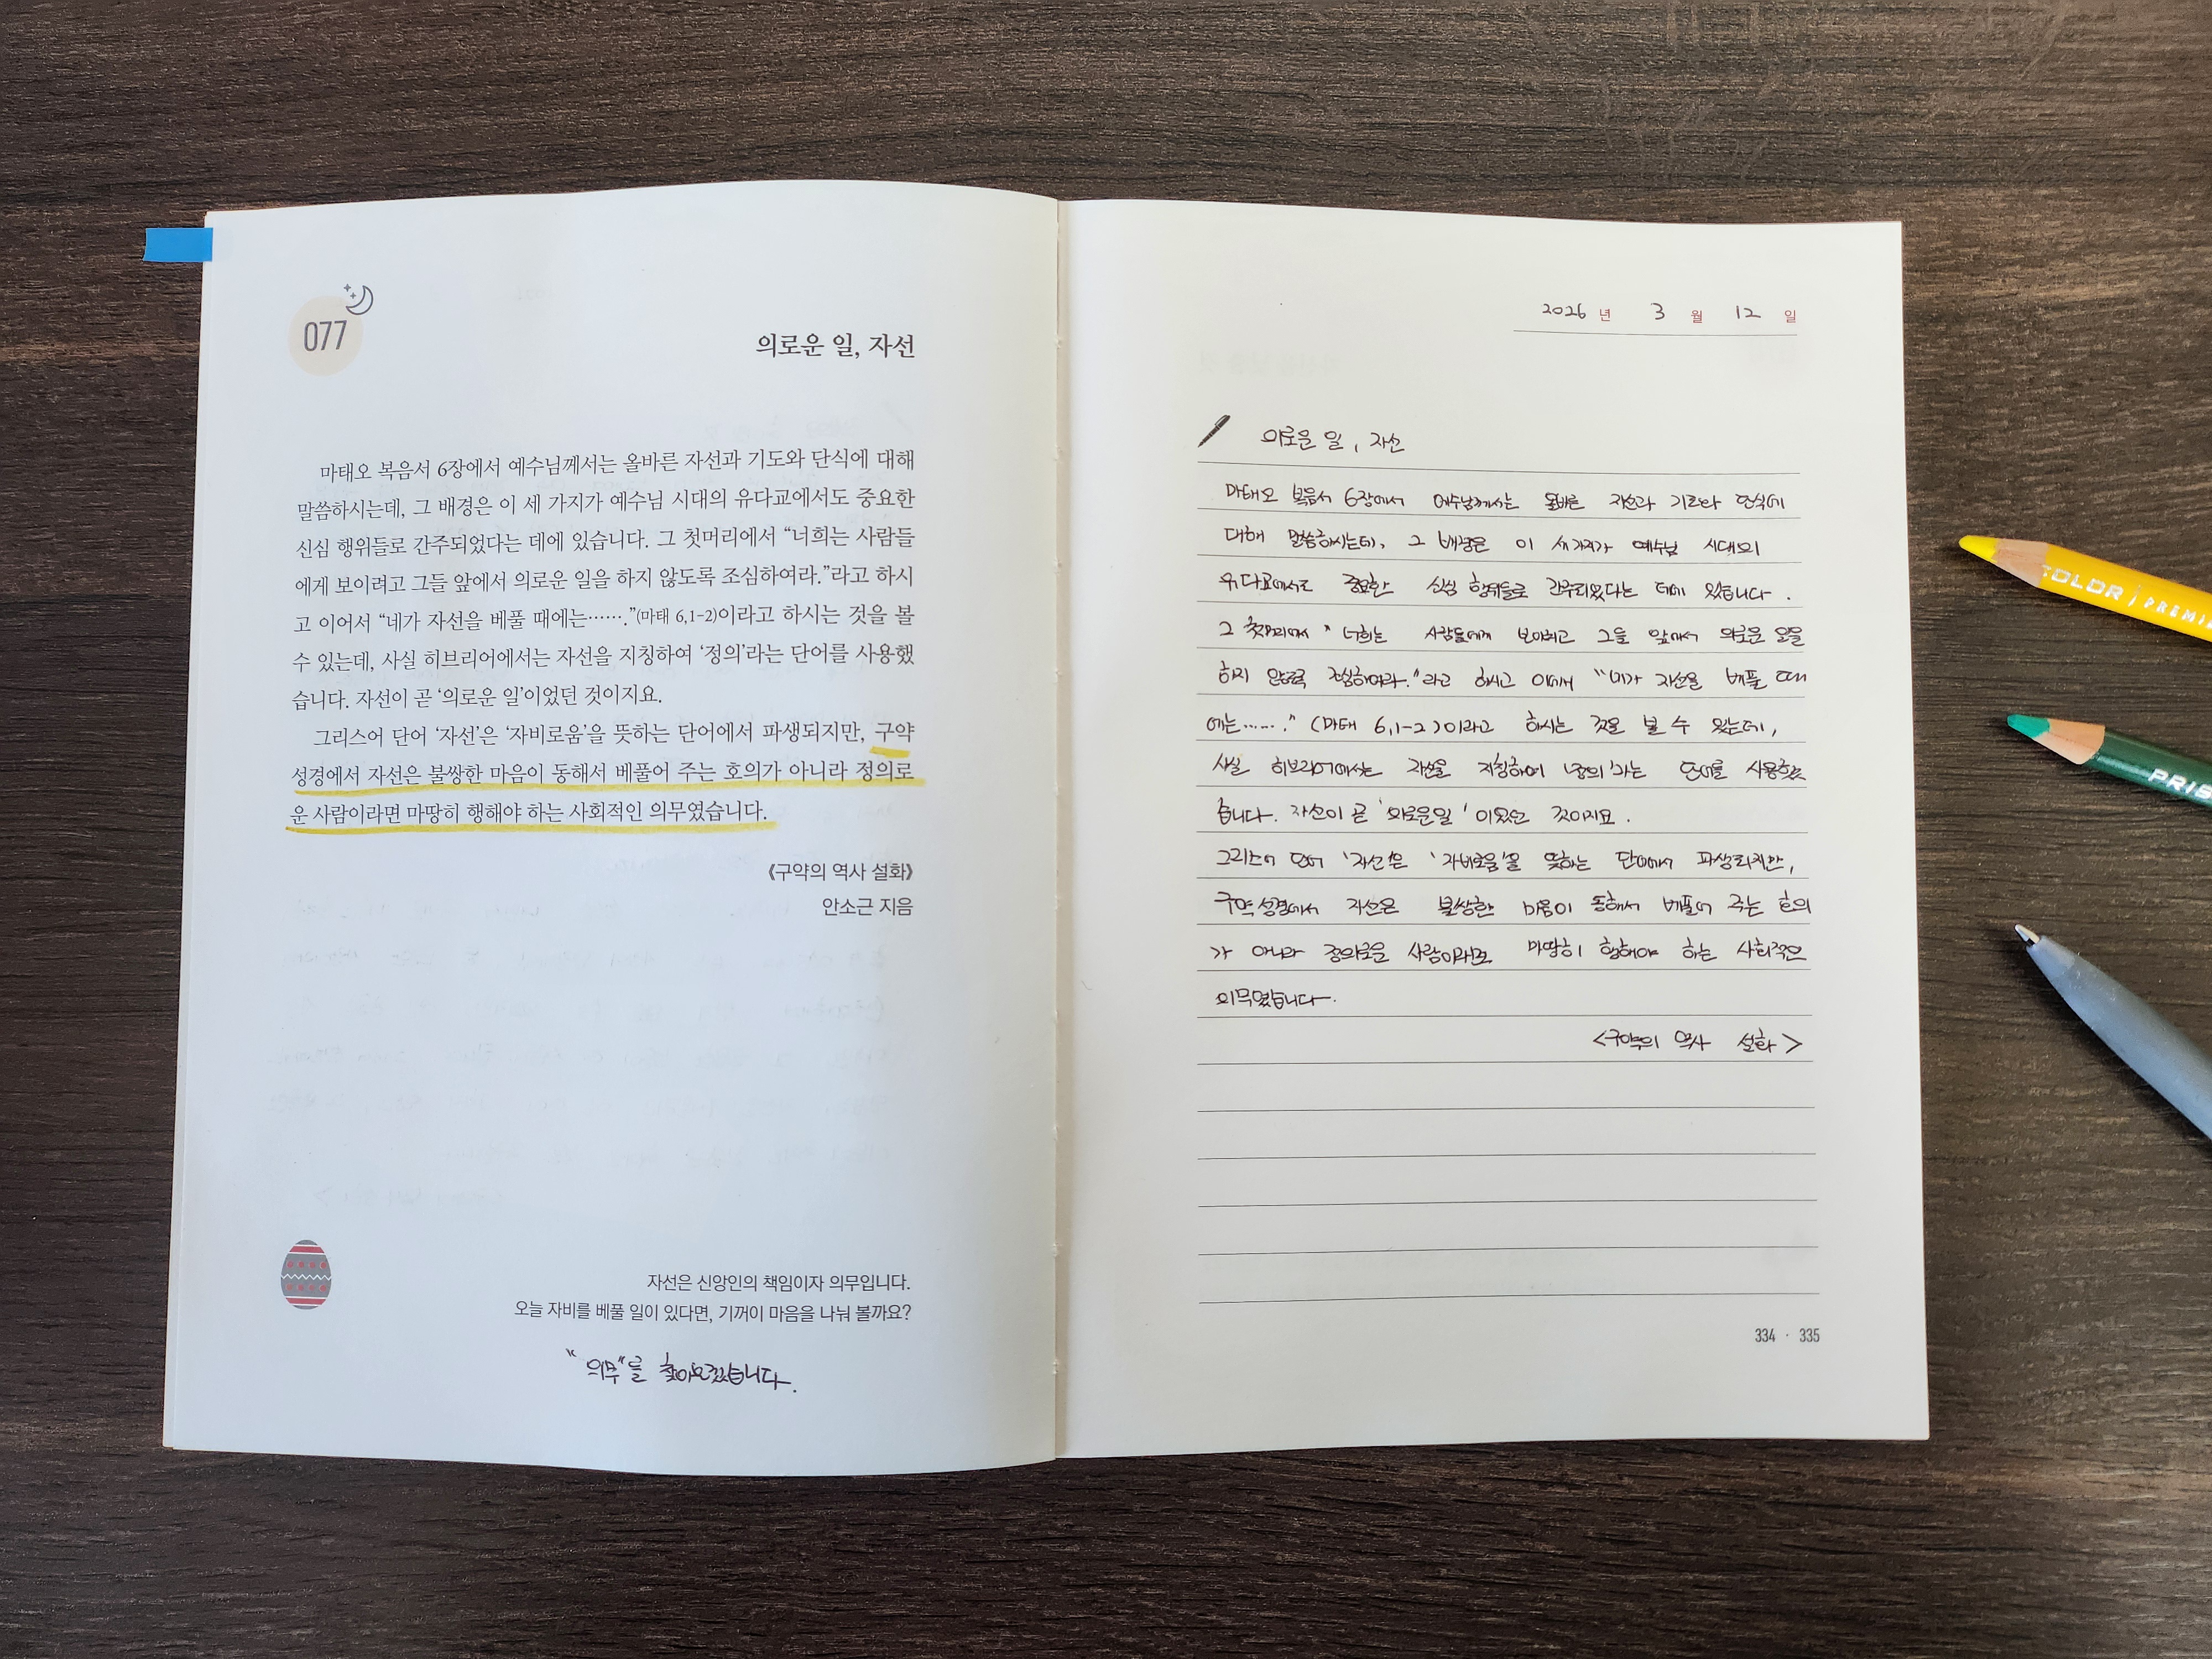 077
의로운 일, 자선
마태오 복음서 6장에서 예수님께서는 올바른 자선과 기도와 단식에 대해
말씀하시는데, 그 배경은 이 세 가지가 예수님 시대의 유다교에서도 중요한
신심 행위들로 간주되었다는 데에 있습니다. 그 첫머리에서 “너희는 사람들
에게 보이려고 그들 앞에서 의로운 일을 하지 않도록 조심하여라.”라고 하시
고 이어서 “네가 자선을 베풀 때에는…….”(마태 6,1-2)이라고 하시는 것을 볼
수 있는데, 사실 히브리어에서는 자선을 지칭하여 ‘정의’라는 단어를 사용했
습니다. 자선이 곧 ‘의로운 일’이었던 것이지요.
그리스어 단어 ‘자선’은 ‘자비로움’을 뜻하는 단어에서 파생되지만, 구약
성경에서 자선은 불쌍한 마음이 동해서 베풀어 주는 호의가 아니라 정의로
운 사람이라면 마땅히 행해야 하는 사회적인 의무였습니다.
《구약의 역사 설화》
안소근 지음
자선은 신앙인의 책임이자 의무입니다.
오늘 자비를 베풀 일이 있다면, 기꺼이 마음을 나눠 볼까요?
“의무”를 찾아오겠습니다.
2026 년 3 월 12 일
의로운 일, 자선
마태오 복음서 6장에서 예수님께서는 올바른 자선과 기도와 단식에
대해 말씀하시는데, 그 배경은 이 세가지가 예수님 시대의
유다교에서도 중요한 신심 행위들로 간주되었다는 데에 있습니다.
그 첫머리에서 “너희는 사람들에게 보이려고 그들 앞에서 의로운 일을
하지 않도록 조심하여라.”라고 하시고 이어서 “네가 자선을 베풀 때
에는…….” (마태 6,1-2)이라고 하시는 것을 볼 수 있는데,
사실 히브리어에서는 자선을 지칭하여 ‘정의’라는 단어를 사용했
습니다. 자선이 곧 ‘의로운일’이었던 것이지요.
그리스어 단어 ‘자선’은 ‘자비로움’을 뜻하는 단어에서 파생되지만,
구약 성경에서 자선은 불쌍한 마음이 동해서 베풀어 주는 호의
가 아니라 정의로운 사람이라면 마땅히 행해야 하는 사회적인
의무였습니다.
<구약의 역사 설화>
334 · 335
COLOR PREMI
PRIS